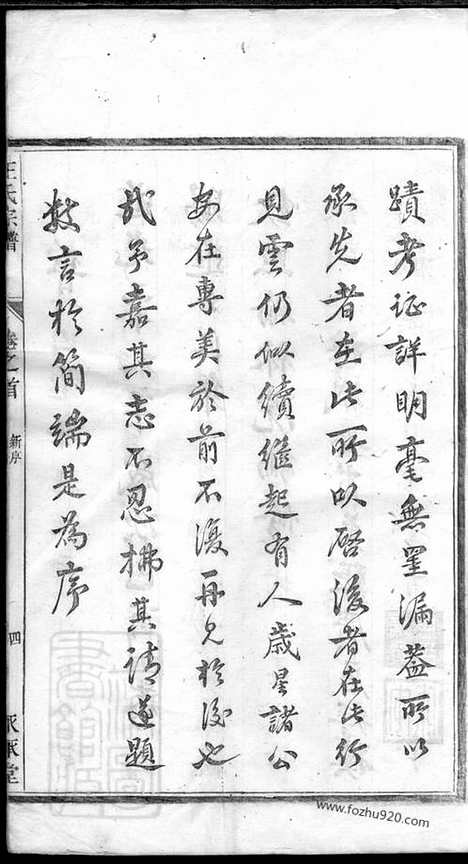 蹟考证詳明毫無罣漏蓋所以
承先者在此而所以啓後者在此行
見雲仍似續繼起有人歲星諸公
安在專美於前不復再見於後也
哉予嘉其志不忍拂其请遂題
数言於简端是為序
王氏宗譜
卷之首
新序
四
www.fozhu920.com